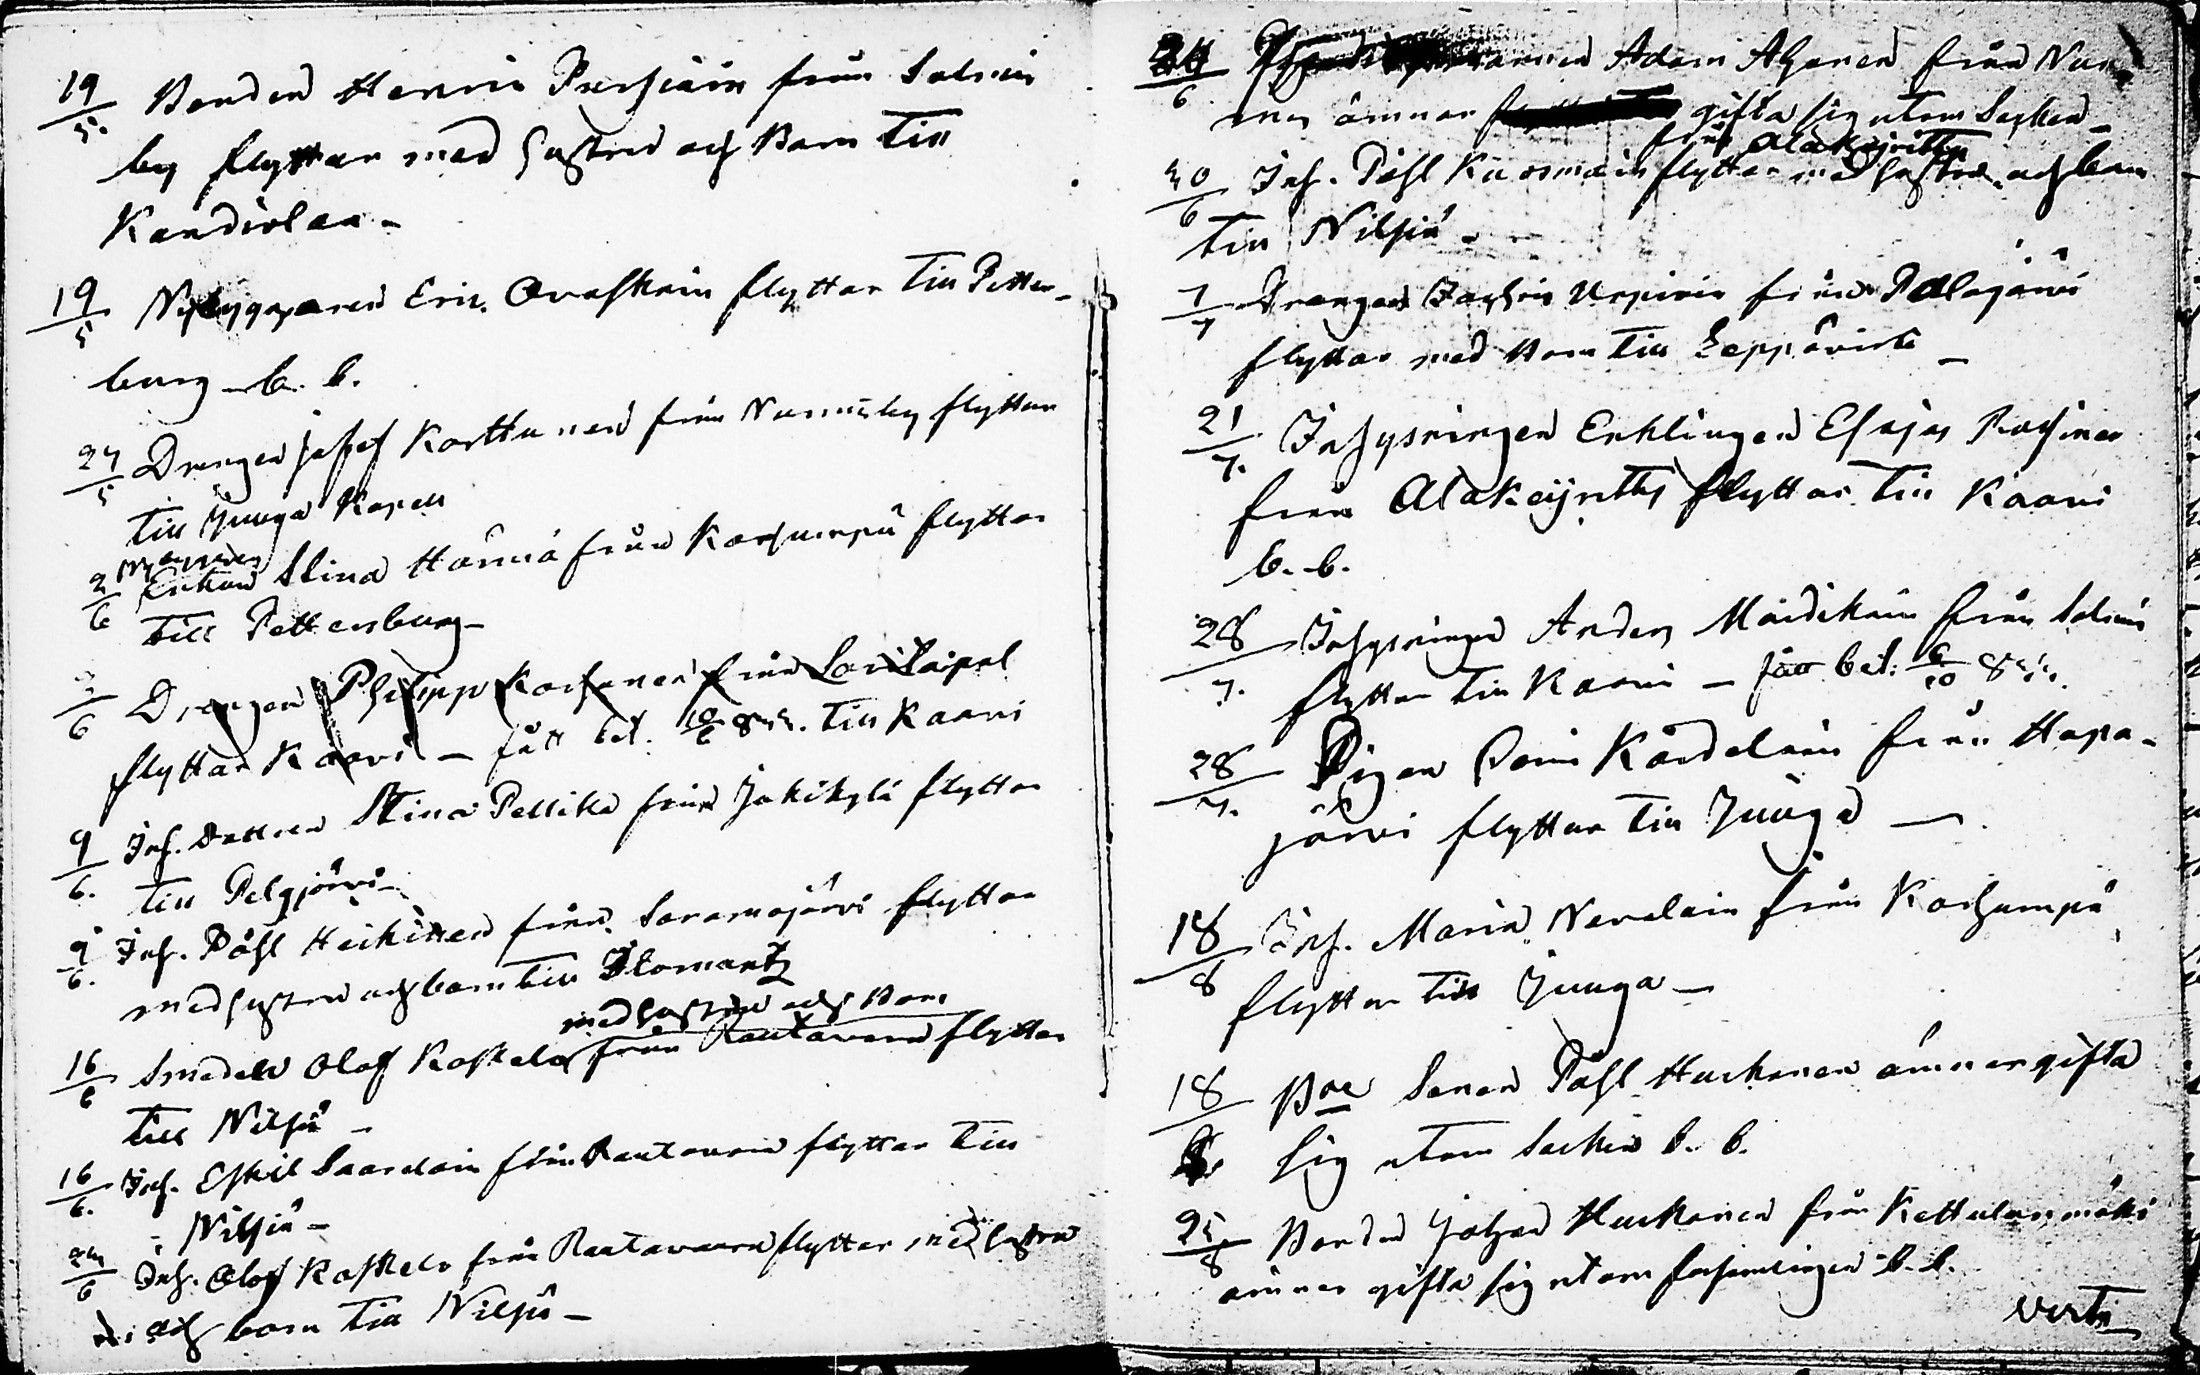 19/5. Bonden Henric Pursiain från Salmis
by flyttar med hustru och barn till
Kandivlax -
19/5 Nybyggaren Eric Ovaskain flyttar till Petter-
burg - b. b.
27/5 Drengen Josef Korttunen från Nurmisby flyttar
till Juuga Kapell
2/6 Enkan Stina Hämä från Karhunpä flyttar
till Pettersburg -
2/6 Drengen Philipp Korhonen från Savilaipal
flyttar Kaavi - fått bet. 10/6 till Kaavi
9/6. Inh. dottren Stina Pellika från Jokikylä flyttar
till Pelgjärvi -
9/6. Inh. Påhl Heikinen från Saramojärvi flyttar
med hustru och barn till Ilomantz
med hustru och barn
16/6 Smeden Olof Koskelo från Rautavara flyttar
till Nilsiä -
16/6. Inh. Eskil Saarelain från Rautavara flyttar till
Nilsiä -
24/6 Inh. Olof Koskelo från Rautavaara flyttar med hustru
och barn till Nilsiä -
24/6 Adam Ahonen från Nur-
mes ämnar gifta sig utom Socken -
från Alakeyritty
30/6 Inh. Påhl Kuosmain flyttar med hustru och barn
till Nilsiä -
7/7 Drengen från Palojärvi
flyttar med barn till Leppävirta -
21/7. Inhysningen Enklingen Esajas
från Alakeyritty flyttar till Kaavi
b. b.
28/7. Inhysningen Anders Määdikäin från Salmis
flyttar till Kaavi - fått bet. 6/10
28/7. Pigan Kärdelain från Hapa-
järvi flyttar till Juuga -
18/8 Inh. Maria Nevalain från Karhunpä
flyttar till Juuga -
18/8 Bde Sonen Påhl Huskonen ämnar gifta
sig utom Socken b. b.
25/8 Bonden Johan Huskonen från Kettulanmäki
ämnar gifta sig utom församlingen b. b.
verte